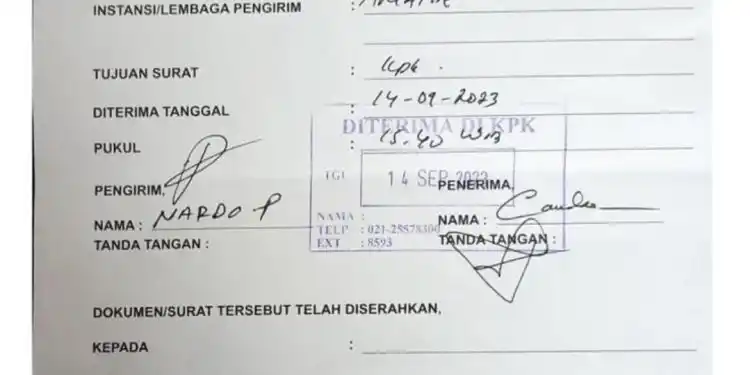 INSTANSI/LEMBAGA PENGIRIM :
TUJUAN SURAT : Kpk .
DITERIMA TANGGAL : 14-09-2023
DITERIMA DI KPK
PUKUL : 15.40 WIB
TGL 14 SEP 2023
PENGIRIM, PENERIMA,
NAMA : NARDO P NAMA : NAMA :
TELP : 021-25578300
TANDA TANGAN : EXT : 8593 TANDA TANGAN :
DOKUMEN/SURAT TERSEBUT TELAH DISERAHKAN,
KEPADA :